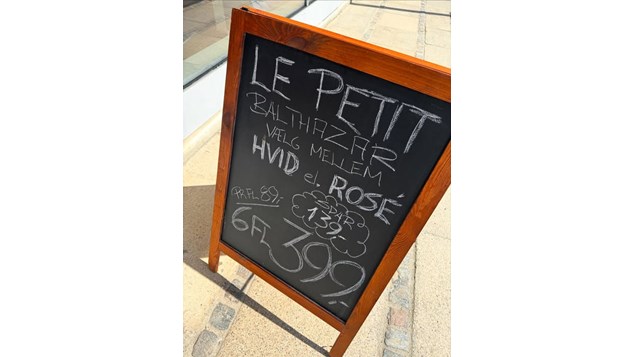 LE PETIT
BALTHAZAR
VÆLG MELLEM
HVID el. ROSÉ
PR.FL 89,-
SPAR
139,-
6 FL 399,-